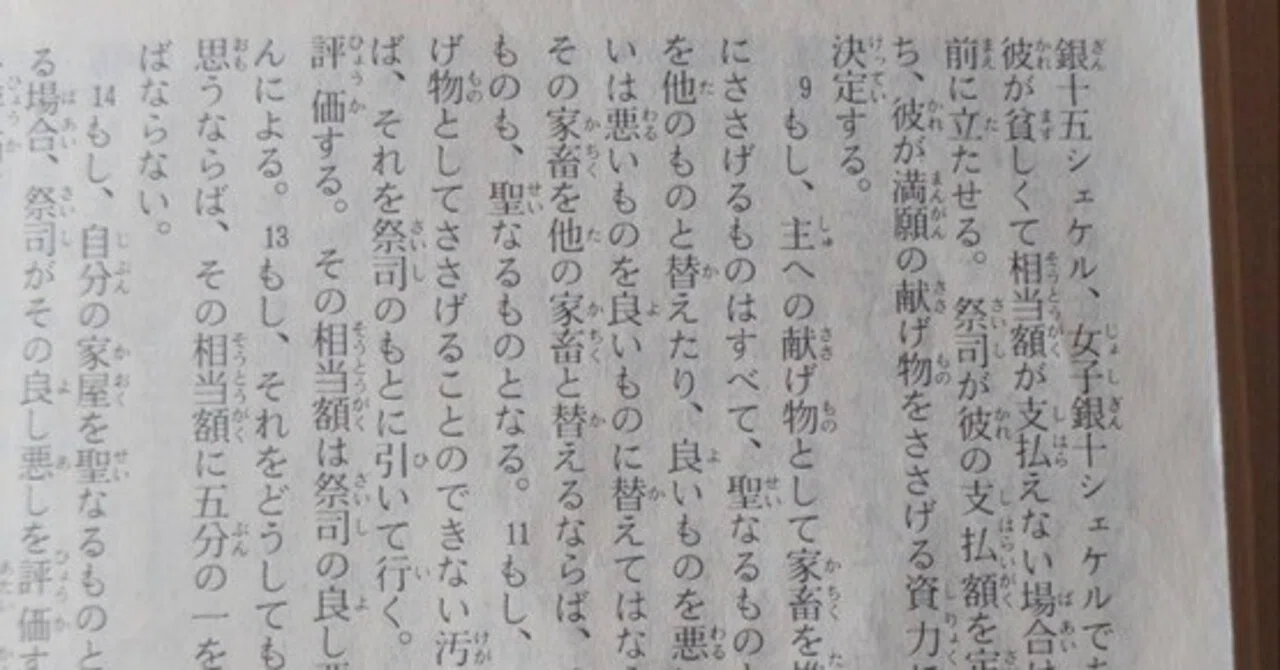 銀十五シェケル、女子銀十シェケルで
彼が貧しくて相当額が支払えない場合
前に立たせる。祭司が彼の支払額を
ち、彼が満願の献げ物をささげる資力
決定する。
9もし、主への献げ物として家畜を
にささげるものはすべて、聖なるもの
を他のものと替えたり、良いものを悪
いは悪いものを良いものに替えてはな
その家畜を他の家畜と替えるならば、
ものも、聖なるものとなる。11もし、
げ物としてささげることのできない汚
ば、それを祭司のもとに引いて行く。
評価する。その相当額は祭司の良し
んによる。13もし、それをどうしても
思うならば、その相当額に五分の一を
ばならない。
14もし、自分の家屋を聖なるものと
る場合、祭司がその良し悪しを評価す